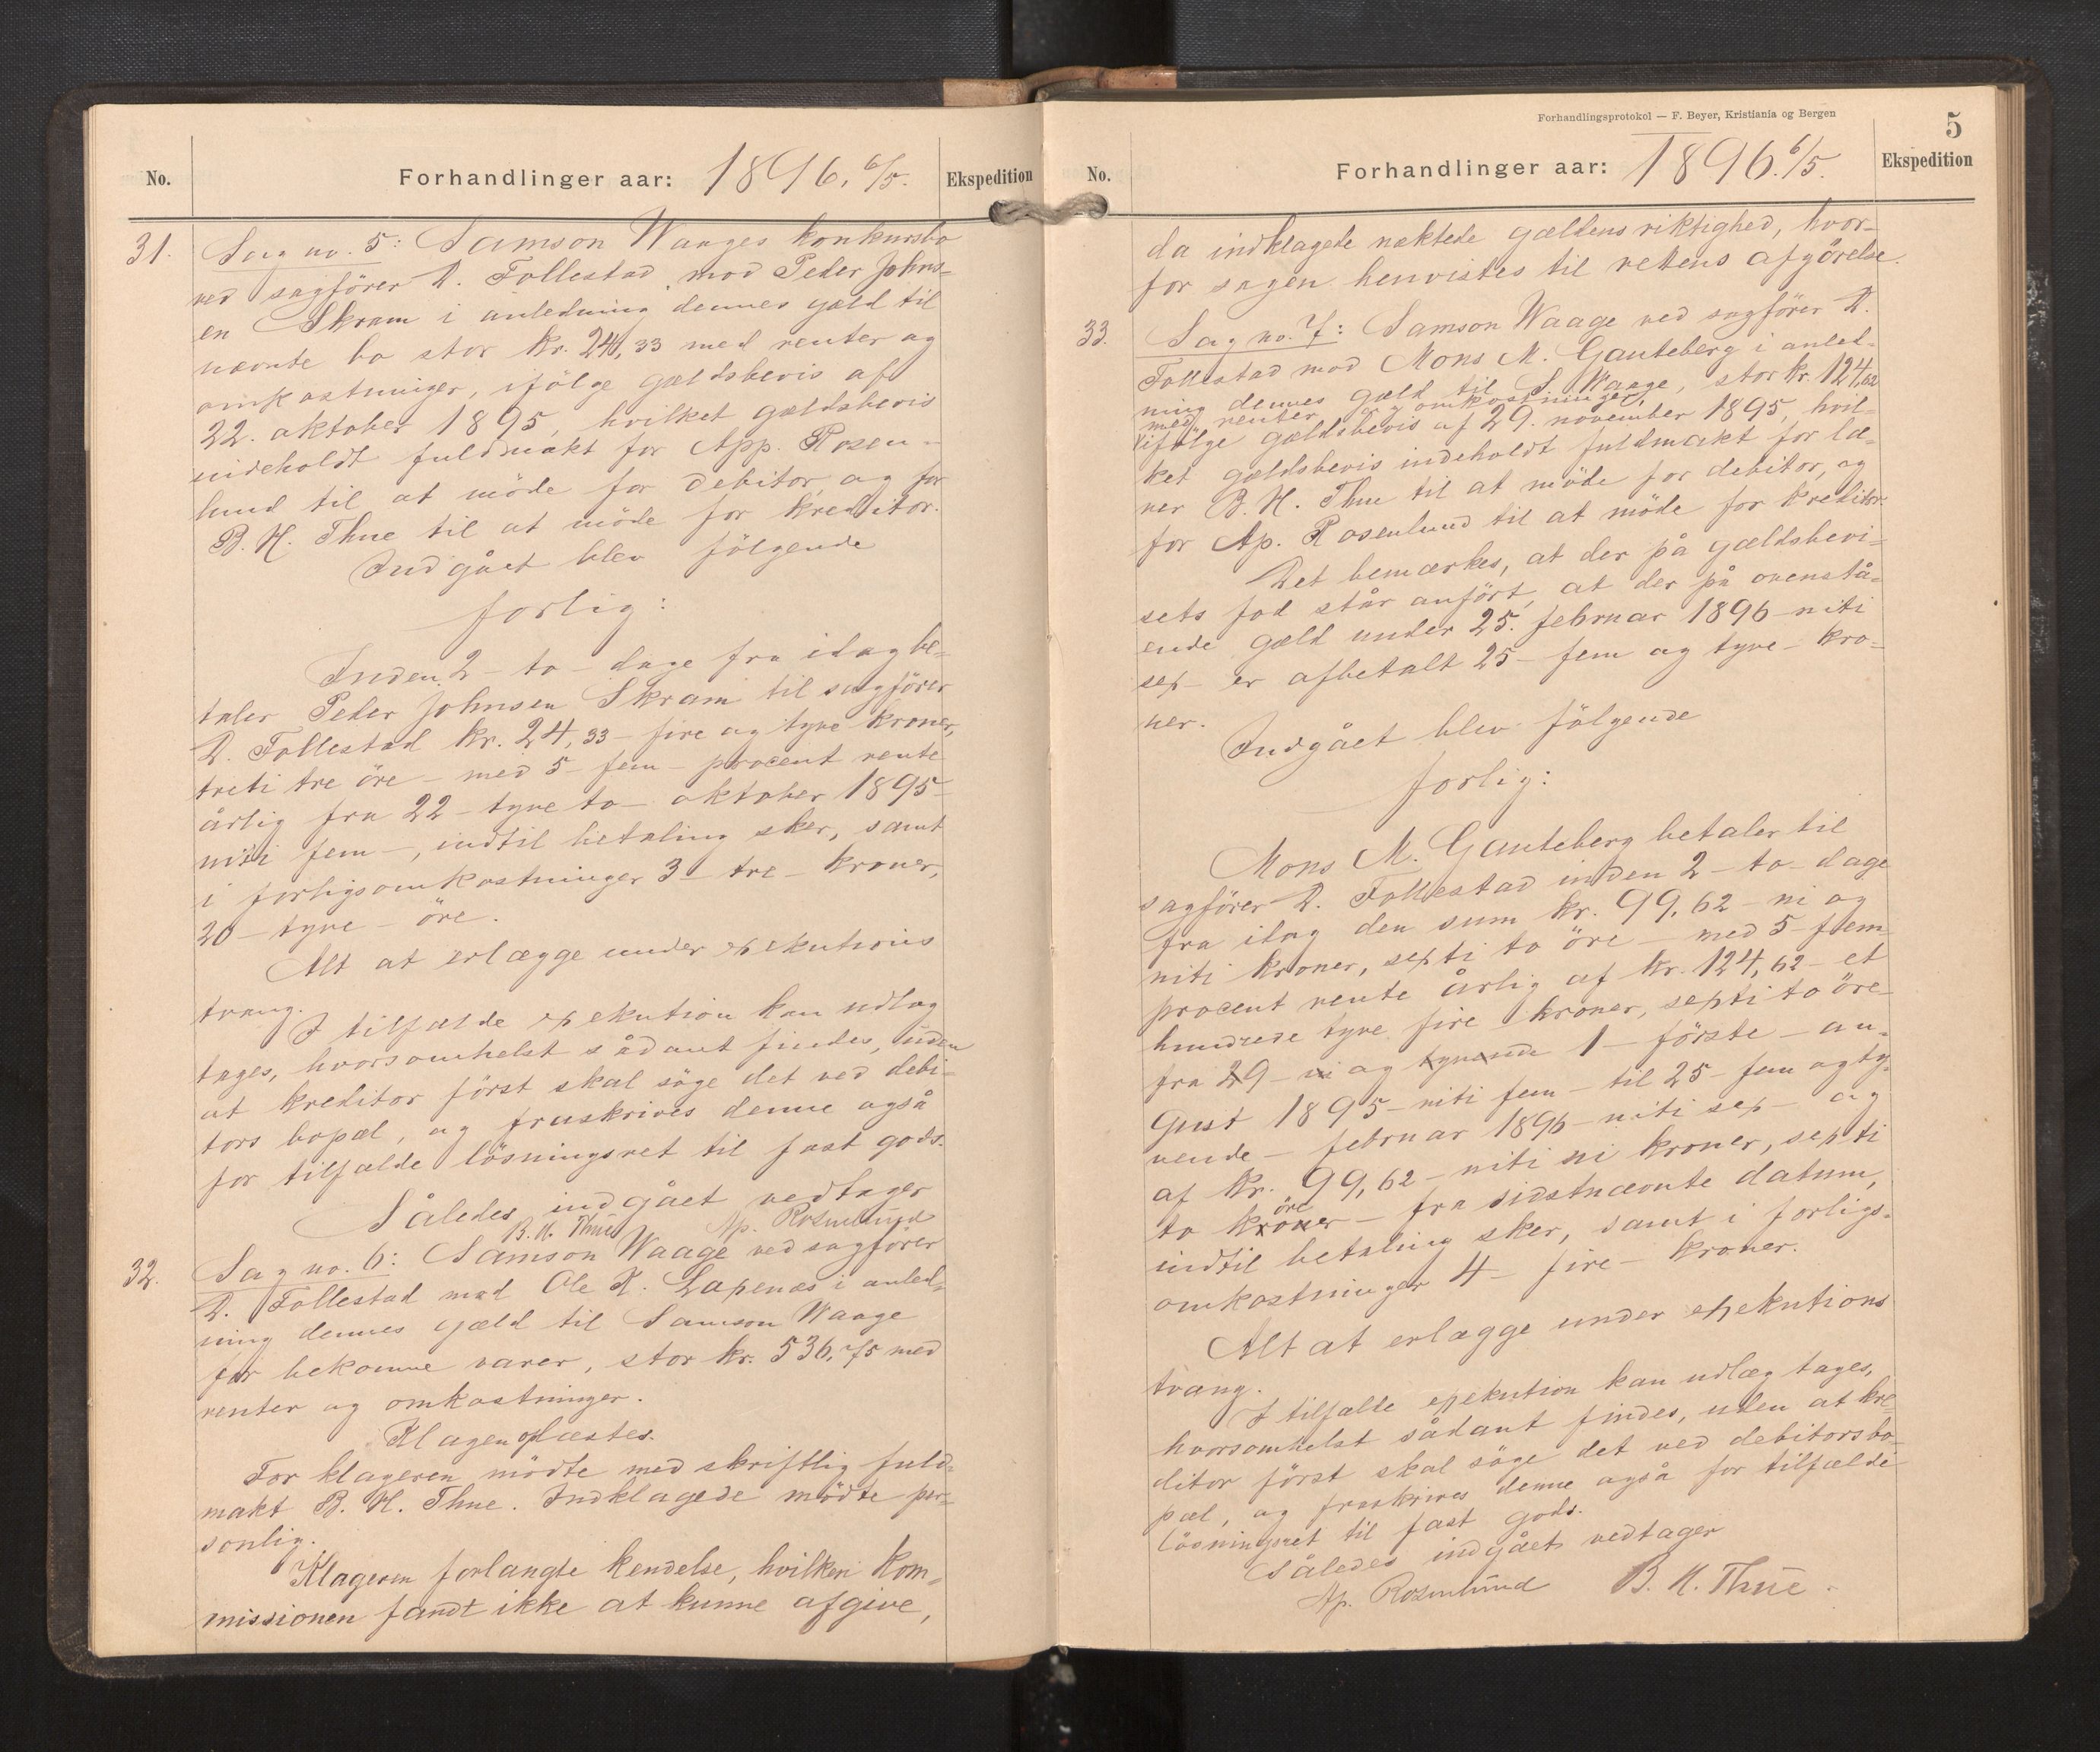 No.
Forhandlinger aar: 1896. 6/5.
Ekspedition
31.
Sag no. 5: Samson Waages konkursbo
ved sagförer D. Follestad mod Peder Johns-
en Skram i anledning dennes gæld til
nævnte bo stor kr. 24,33 med renter og
omkostninger, ifölge gældsbevis af
22. oktober 1895, hvilket gældsbevis
indeholdt fuldmakt for App. Rosen-
lund til at möde for debitor og for
B. H. Thue til at möde for kreditor.
Indgået blev fölgende
forlig:
Inden 2 - to - dage fra idag be-
taler Peder Johnsen Skram til sagförer
D. Follestad kr. 24,33 - fire og tyve kroner,
treti tre öre - med 5 - fem - procent rente
årlig fra 22 - tyve to - oktober 1895 -
niti fem -, indtil betaling sker, samt
i forligsomkostninger 3 - tre - kroner,
20 - tyve - öre.
Alt at erlægge under exekutions
tvang.
I tilfælde exekution kan udlæg
tages, hvorsomhelst sådant findes, uden
at kreditor först skal söge det ved debi-
tors bopæl, og fraskrives denne også
for tilfælde lösningsret til fast gods.
Således indgået vedtager
B. H. Thue Ap. Rosenlund
32.
Sag no. 6: Samson Waage ved sagförer
D. Follestad mod Ole K. Lapenæs i anled-
ning dennes gæld til Samson Waage
for bekomne varer, stor kr. 536,75 med
renter og omkostninger.
Klagen oplæstes.
For klageren mödte med skriftlig fuld-
makt B. H. Thue. Indklagede mödte per-
sonlig.
Klageren forlangte kendelse, hvilken kom-
missionen fandt ikke at kunne afgive,
Forhandlingsprotokol — F. Beyer, Kristiania og Bergen
5
No.
Forhandlinger aar: 1896. 6/5.
Ekspedition
da indklagede nektede gældens riktighed, hvor-
for sagen henvistes til rettens afgörelse.
33.
Sag no. 7: Samson Waage ved sagförer D.
Follestad mod Mons M. Gauteberg i anled-
ning dennes gæld til S. Waage, stor kr. 124,62
med renter og omkostninger,
ifölge gældsbevis af 29. november 1895, hvil-
ket gældsbevis indeholdt fuldmakt for læ-
rer B. H. Thue til at möde for debitor, og
for Ap. Rosenlund til at möde for kreditor.
Det bemærkes, at der på gældsbevi-
sets fod står anfört, at der på ovenstå-
ende gæld under 25. februar 1896 - niti
sex - er afbetalt 25 - fem og tyve - kro-
ner.
Indgået blev fölgende
forlig:
Mons M. Gauteberg betaler til
sagförer D. Follestad inden 2 - to - dage
fra idag den sum kr. 99,62 - ni og
niti kroner, sexti to öre - med 5 - fem
procent rente årlig af kr. 124,62 - et
hundrede tyve fire kroner, sexti to öre -
fra 29 - ni og tyvende 1 - förste - au-
gust 1895 - niti fem - til 25 - fem og ty-
vende - februar 1896 - niti sex - og
af kr. 99,62 - niti ni kroner, sexti
to kroner öre - fra sidstnævnte datum,
indtil betaling sker, samt i forligs-
omkostninger 4 - fire - kroner.
Alt at erlægge under exekutions
tvang.
I tilfælde exekution kan udlæg tages,
hvorsomhelst sådant findes, uden at kre-
ditor först skal söge det ved debitors bo-
pæl, og fraskrives denne også for tilfælde
lösningsret til fast gods.
Således indgået vedtager
Ap. Rosenlund B. H. Thue.